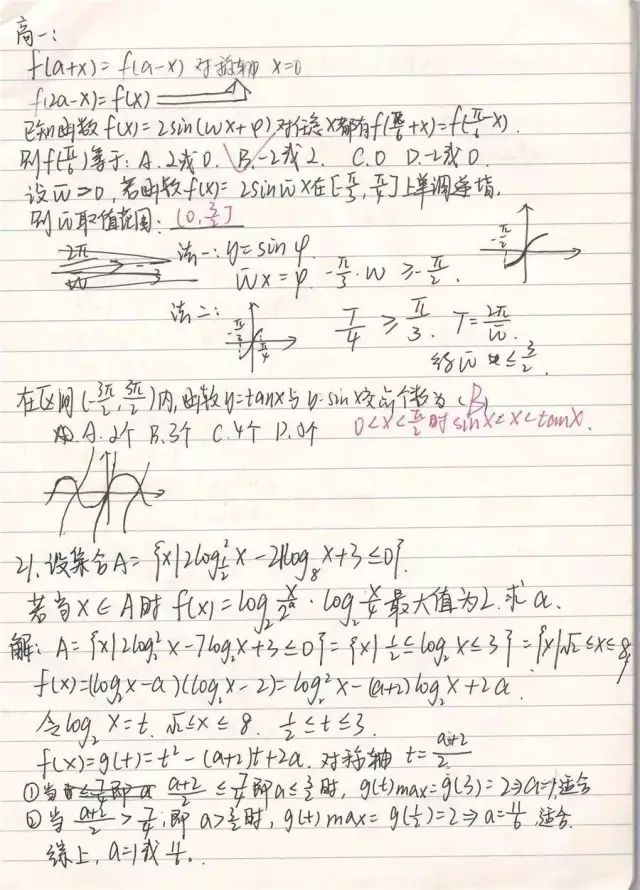 高一:
f(a+x)=f(a-x) 对称轴 x=0
f(2a-x)=f(x)
已知函数 f(x)=2sin(wx+φ)对任意x都有f(π/6+x)=f(π/6-x).
则f(π/6)等于: A.2或0. B.-2或2. C.0 D.-2或0.
设w>0,若函数f(x)=2sinwx在[-π/3,π/4]上单调递增.
则w取值范围: (0,3/2]
2π/w 法一: y=sinφ -π/2
wx=φ -π/3·w ≥-π/2.
法二: -π/3 π/4 T/4 ≥ π/3. T=2π/w
w ≤3/2.
在区间(-3π/2,3π/2)内,函数y=tanx与y=sinx交点个数为(B)
A.2个 B.3个 C.4个 D.个
0<x<π/2时sinx<x<tanx.
21.设集合A={x|2log²_{1/2}x-21log_8x+3≤0}.
若当x∈A时 f(x)=log_2 x/2^a · log_2 x/4 最大值为2.求a.
解: A={x|2log_2²x-7log_2x+3≤0}={x|1/2≤log_2x≤3}={x|√2≤x≤8}
f(x)=(log_2x-a)(log_2x-2)=log_2²x-(a+2)log_2x+2a
令log_2x=t. √2≤x≤8. 1/2≤t≤3
f(x)=g(t)=t²-(a+2)t+2a. 对称轴 t=a+2/2
①当 a+2/2 ≤7/4即a≤3/2时, g(t)max=g(3)=2⇒a=1适合
②当 a+2/2 >7/4,即a>3/2时, g(t)max=g(1/2)=2⇒a=11/6 适合.
综上, a=1或11/6.